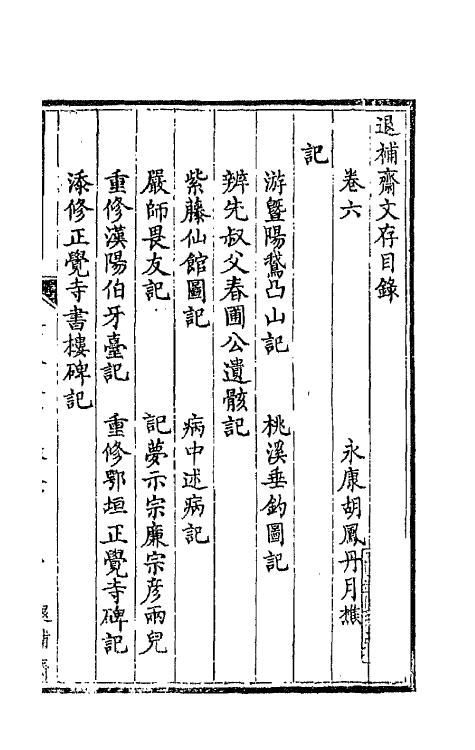 退補齋文存目錄
卷六
永康胡鳳丹月樵
記
游暨陽鵞凸山記
桃溪垂釣圖記
辨先叔父春圃公遺骸記
紫藤仙館圖記
病中述病記
嚴師畏友記
記夢示宗廉宗彥兩兒
重修漢陽伯牙臺記
重修鄂垣正覺寺碑記
添修正覺寺書樓碑記
退補齋